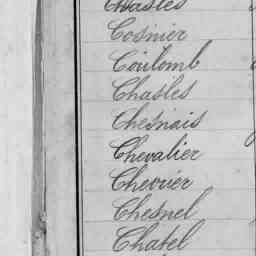 Chasles
Cosnier
Coulomb
Chasles
Chesnais
Chevalier
Chevrier
Chesnel
Chatel